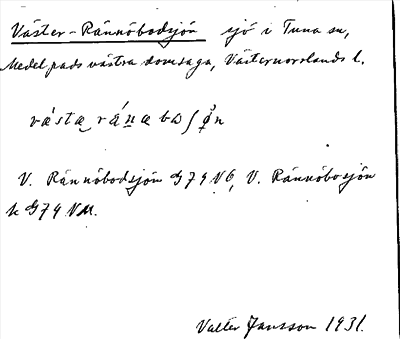 Väster-Rännöbodsjön sjö i Tuna sn,
Medelpads västra domsaga, Västernorrlands l.
V. Rännöbodsjön G79 V6, V. Rännöbosjön
k G79 VM.
Valter Jansson 1931.